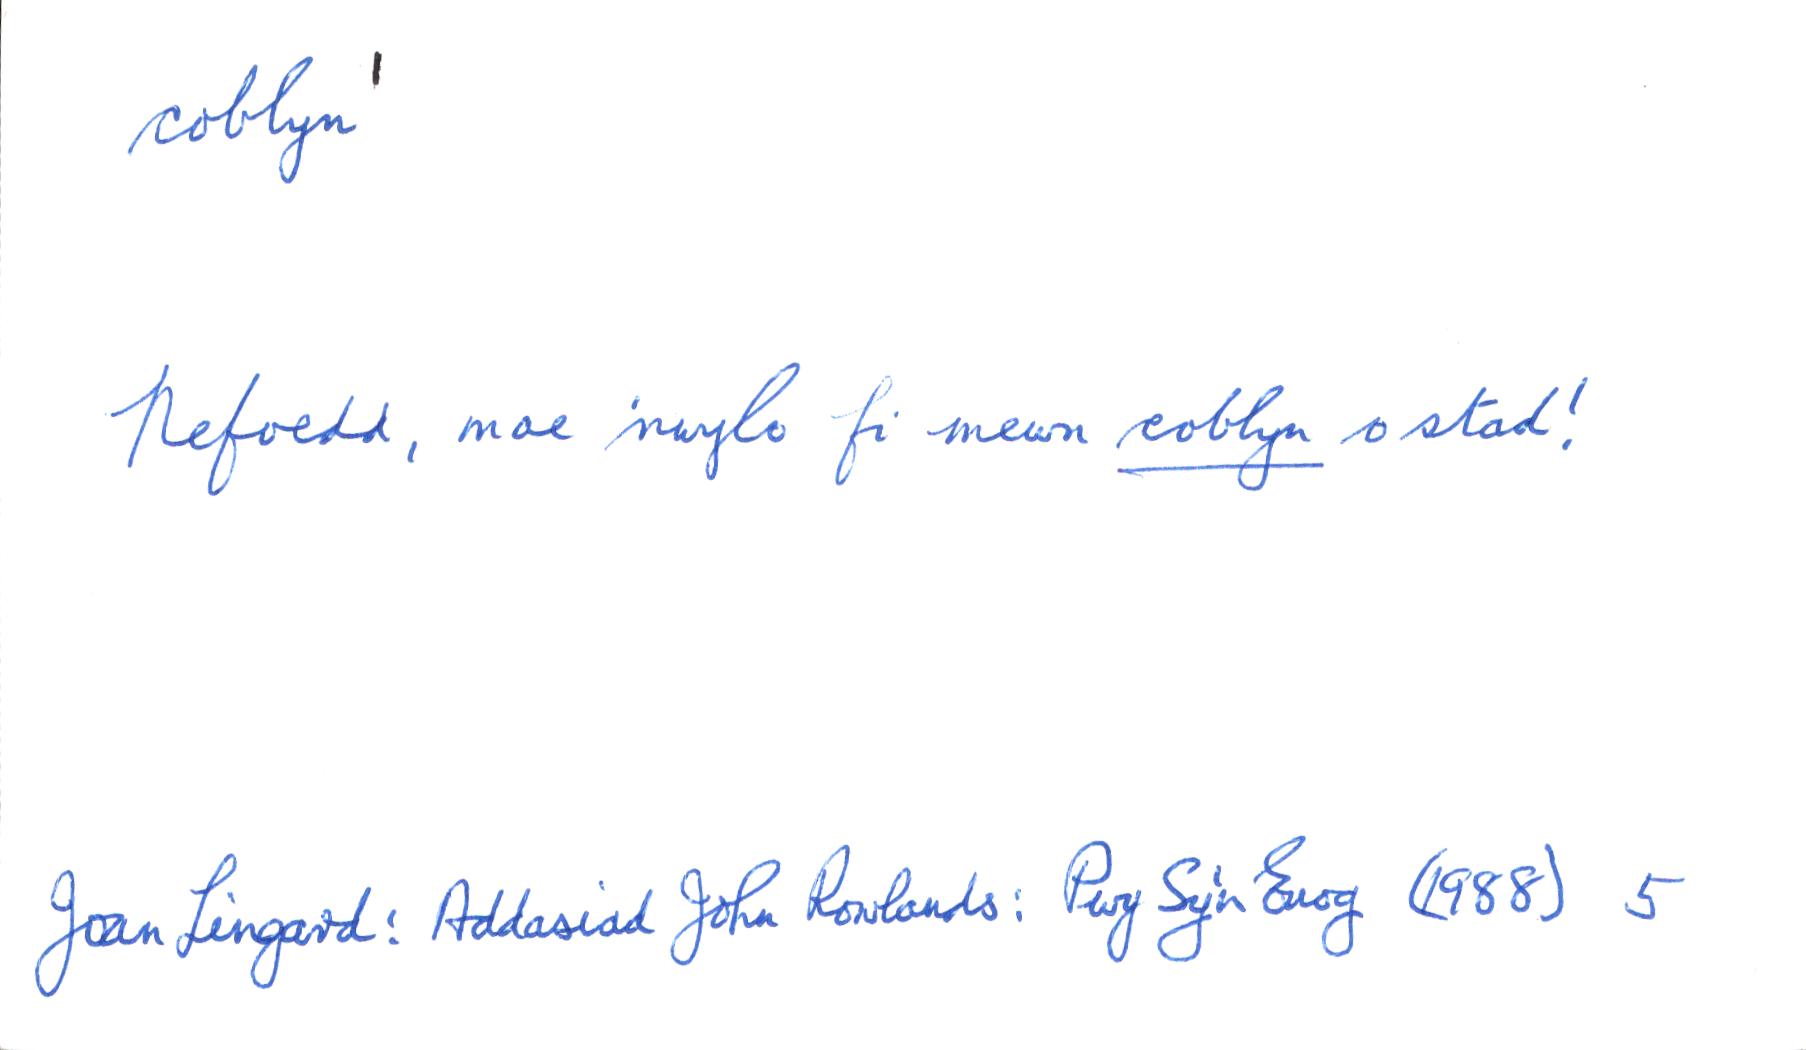 coblyn'
Nefoedd, mae 'nwylo fi mewn coblyn o stad!
Joan Lingard: Addasiad John Rowlands: Pwy Sy'n Euog (1988) 5